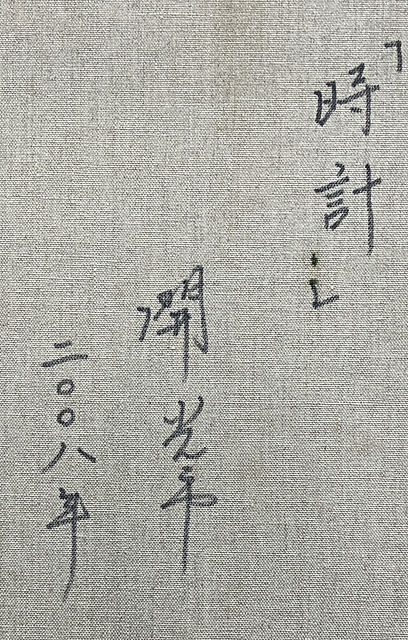 「時計」
開光市
二〇〇八年